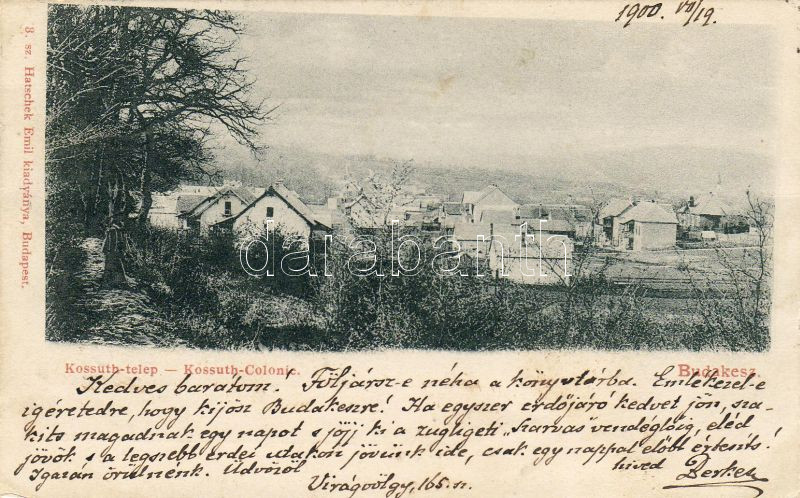 1900. VII/19.
3. sz. Hatschek Emil kiadványa, Budapest.
darabanth
Kossuth-telep — Kossuth-Colonie.
Budakesz.
Kedves barátom! Följársz-e néha a könyvtárba. Emlékezel-e
igéretedre, hogy kijösz Budakeszre! Ha egyszer erdőjáró kedvet jön, sza-
kits magadnak egy napot s jőjj ki a zugligeti „Szarvas vendéglőig, eléd
jövök s a legszebb erdei utakon jövünk ide, csak egy nappal előbb értesíts!
Igazán örülnénk. Üdvözöl
hived
Virágvölgy, 165. sz.